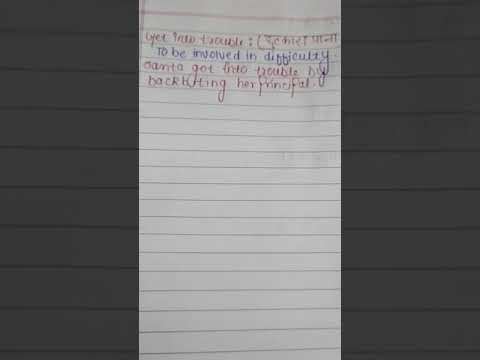 Get into trouble : (छुटकारा पाना
To be involved in difficulty.
Santa got into trouble by
backbiting her principal.